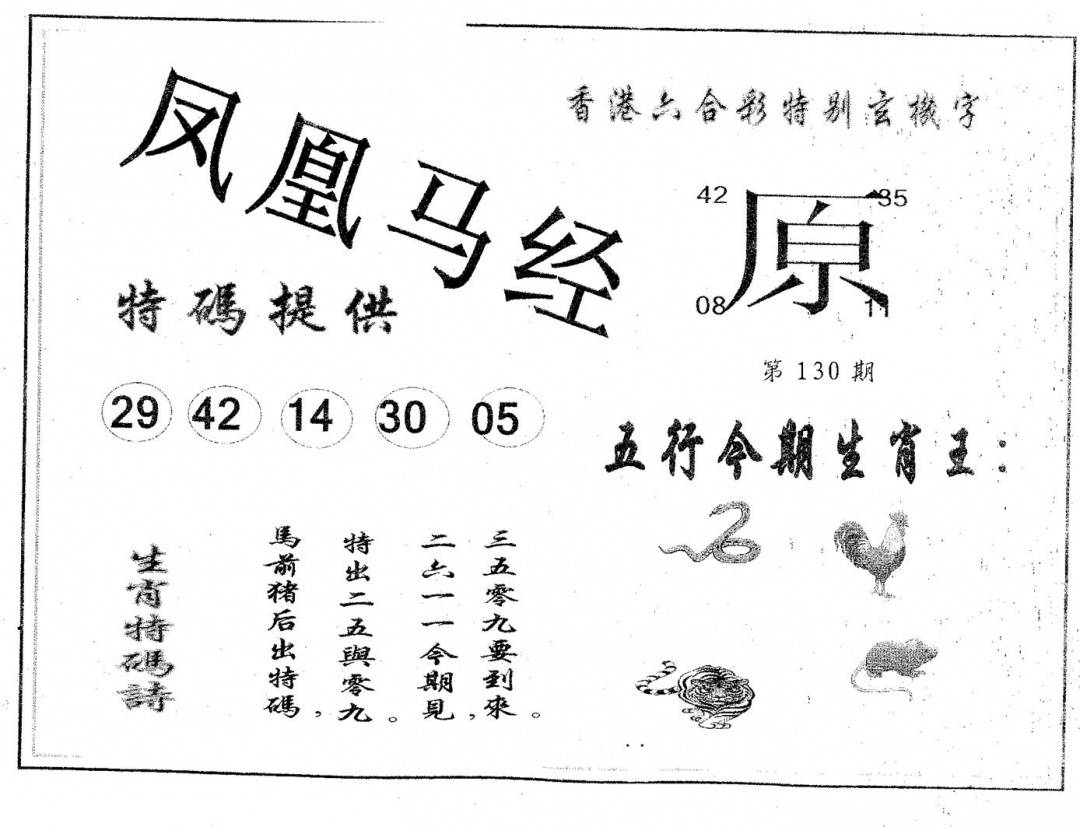 凤凰马经
香港六合彩特别玄機字
42 35
原
08 11
特碼提供
第 130 期
29 42 14 30 05
五行今期生肖王：
生肖特碼詩
馬前猪后出特碼，
特出二五與零九。
二六一一今期見，
三五零九要到來。